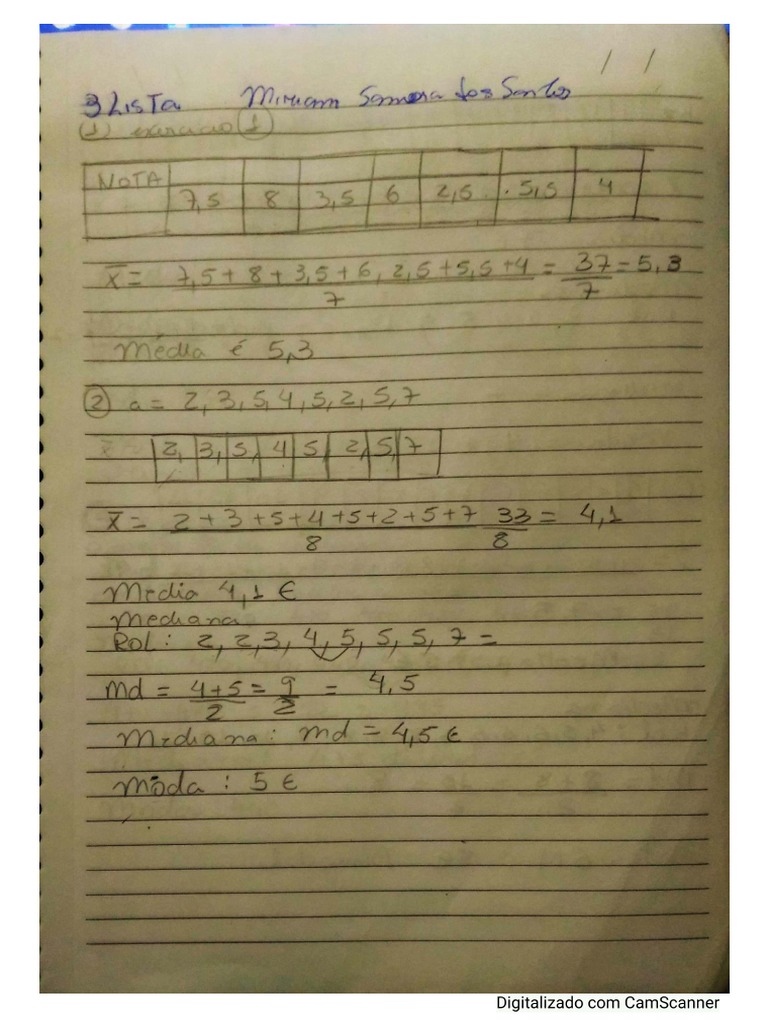 / /
3 Lista Miriam Samara dos Santos
(1) exercicio (1)
NOTA 7,5 8 3,5 6 2,5 5,5 4
x̄ = 7,5 + 8 + 3,5 + 6, 2,5 + 5,5 + 4 = 37 = 5,3
7 7
Média é 5,3
(2) a = 2, 3, 5, 4, 5, 2, 5, 7
x̄ 2, 3, 5, 4 5, 2, 5, 7
x̄ = 2 + 3 + 5 + 4 + 5 + 2 + 5 + 7 33 = 4,1
8 8
Media 4,1 €
Mediana
Rol: 2, 2, 3, 4, 5, 5, 5, 7 =
Md = 4 + 5 = 9 = 4,5
2 2
Mediana: md = 4,5 €
Moda : 5 €
Digitalizado com CamScanner